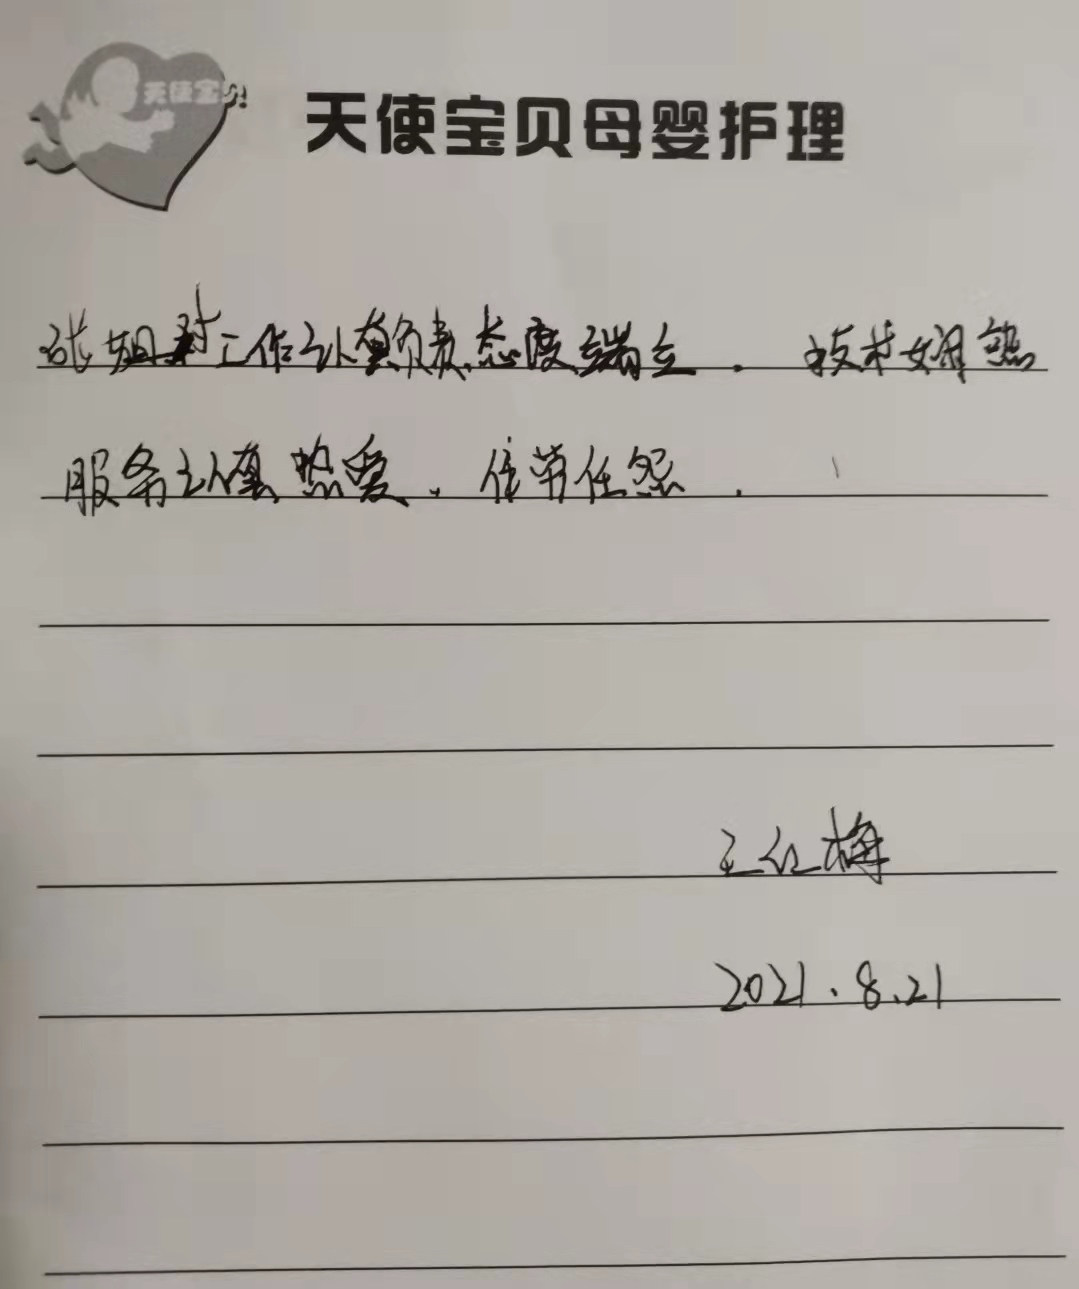 天使宝贝
天使宝贝母婴护理
姐对工作认真负责,态度端立. 技术娴熟
服务认真热爱. 任劳任怨.
王红梅
2021.8.21